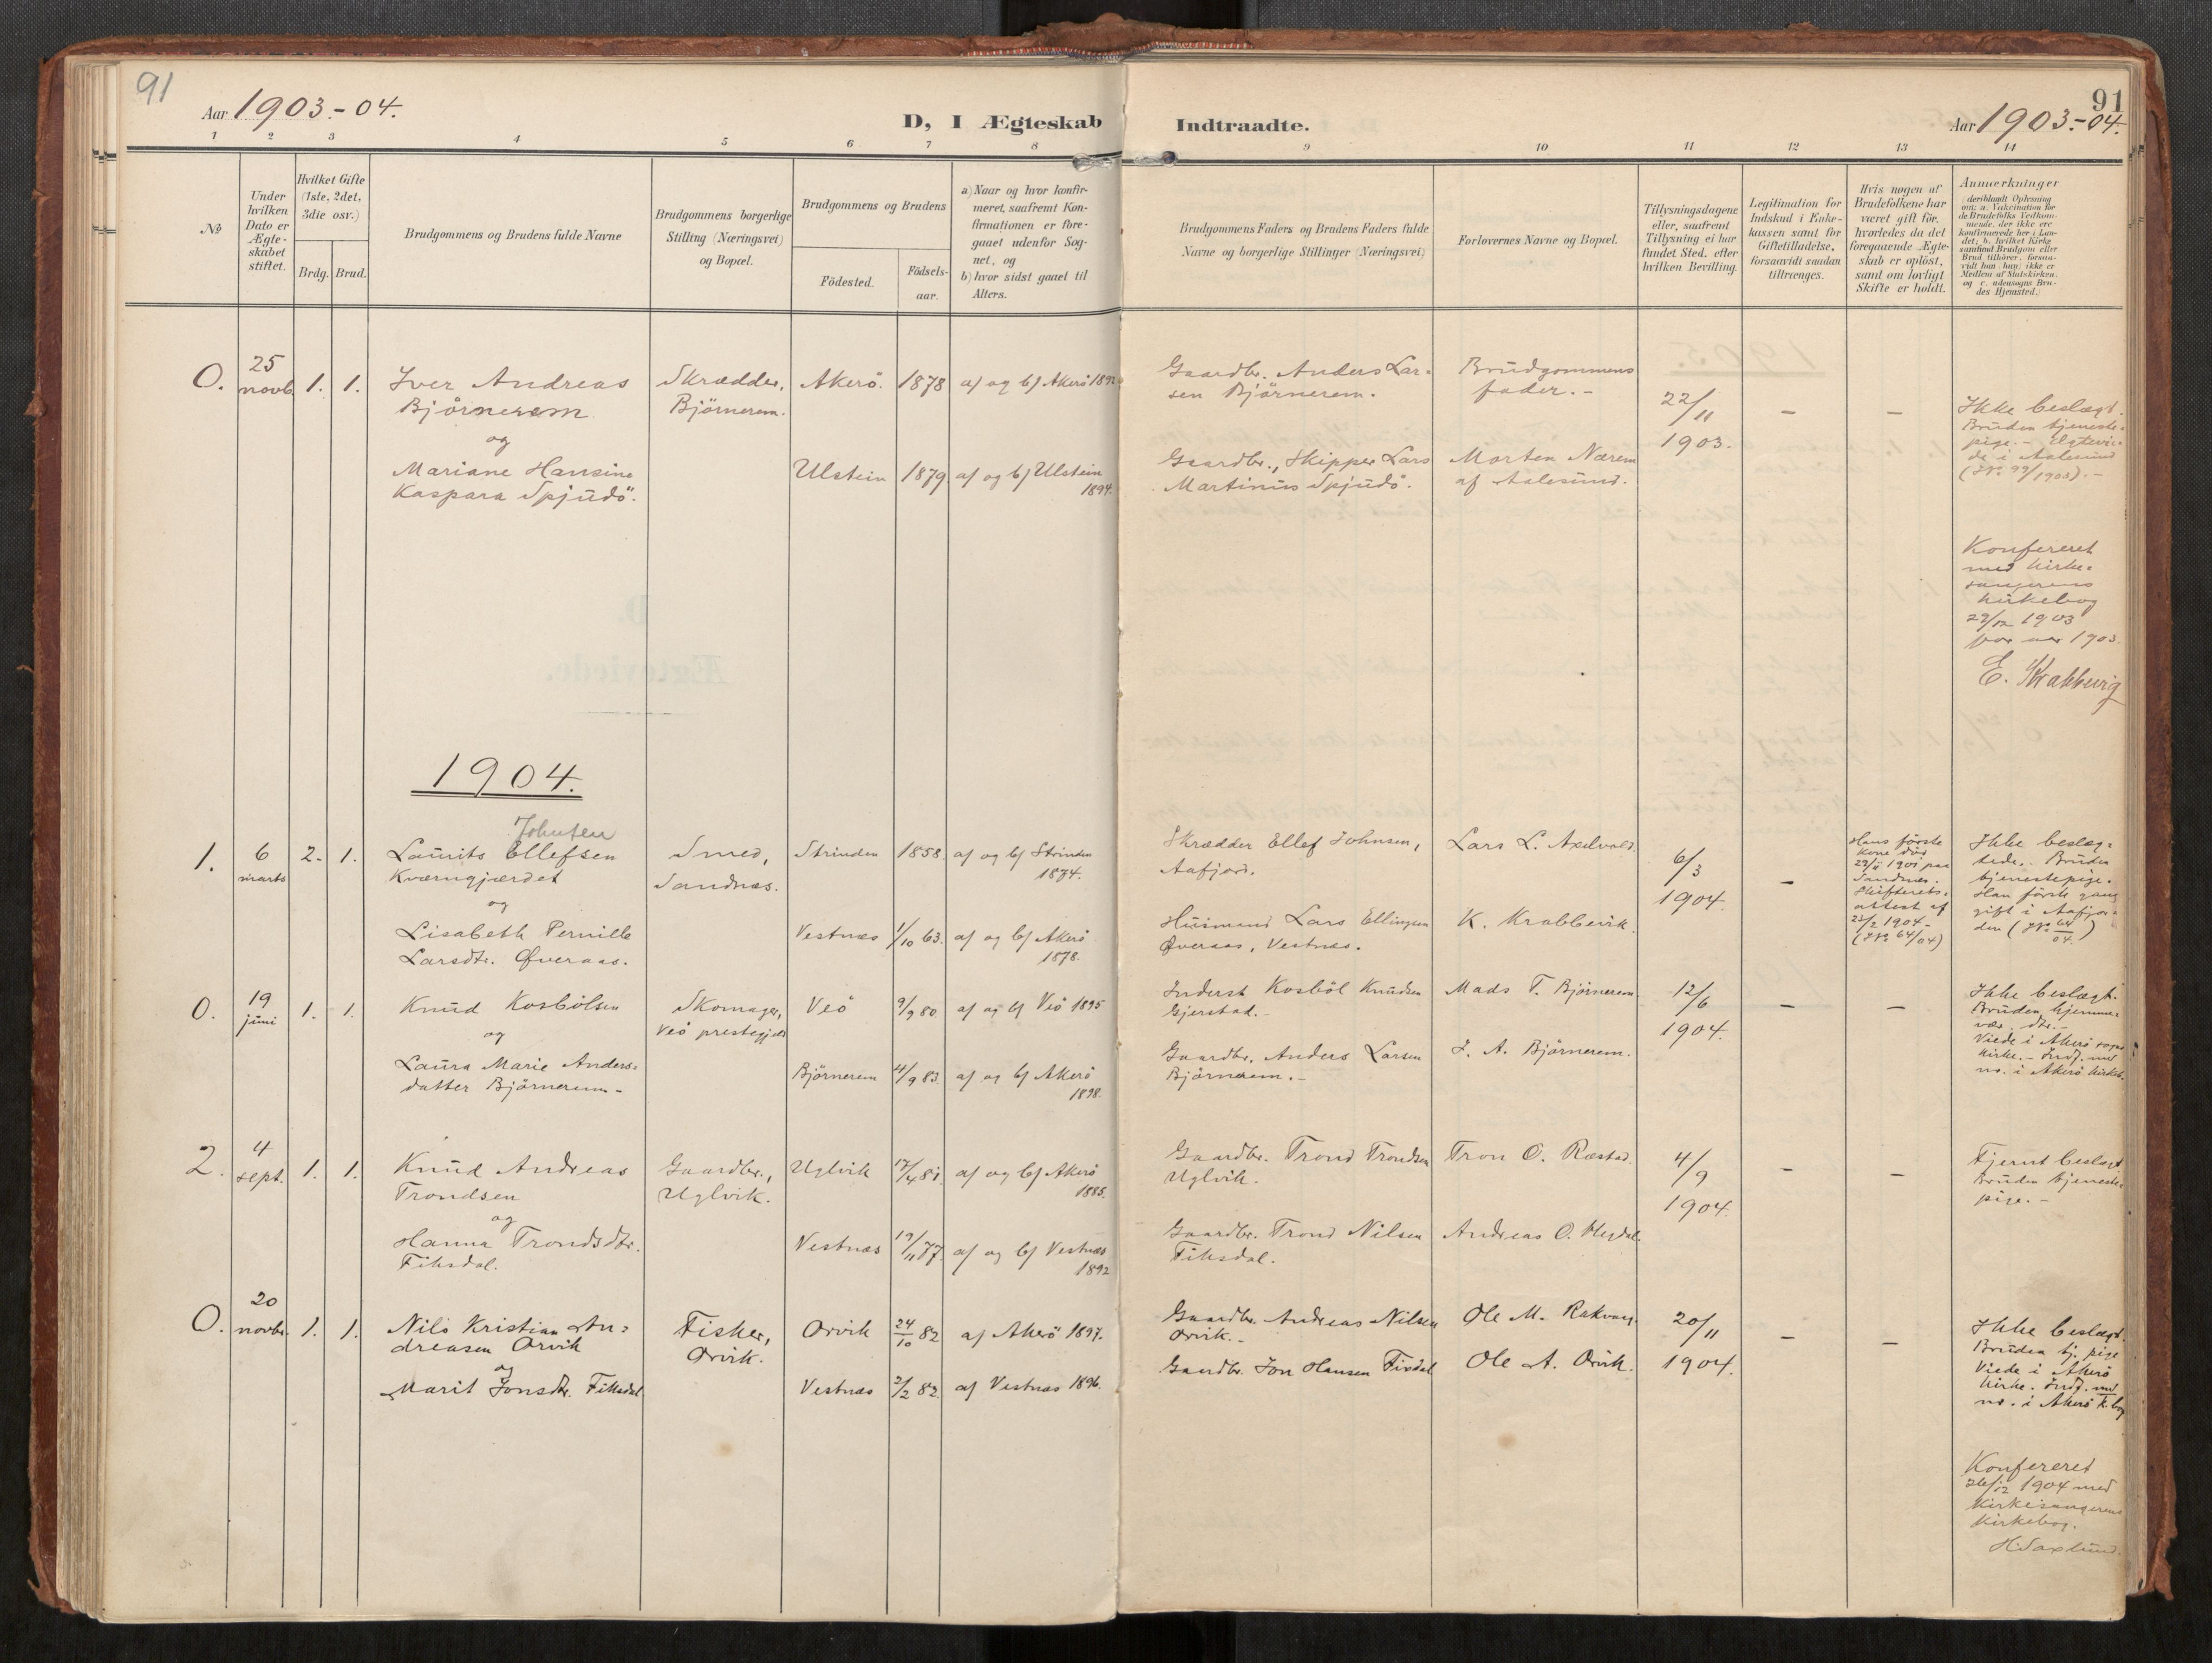 91
Aar 1903.-04.
D, I Ægteskab Indtraadte.
91
Aar 1903.-04.
1 2 3 4 5 6 7 8 9 10 11 12 13 14
No
Under hvilken Dato er Ægte-skabet stiftet.
Hvilket Gifte (1ste, 2det, 3die osv.)
Brdg. Brud.
Brudgommens og Brudens fulde Navne
Brudgommens borgerlige Stilling (Næringsvei) og Bopæl.
Brudgommens og Brudens
Födested.
Födsels-aar.
a) Naar og hvor konfir-meret, saafremt Kon-firmationen er fore-gaaet udenfor Sog-net, og
b) hvor sidst gaaet til Alters.
Brudgommens Faders og Brudens Faders fulde Navne og borgerlige Stillinger (Næringsvei)
Forlovernes Navne og Bopæl.
Tillysningsdagene eller, saafremt Tillysning ei har fundet Sted, efter hvilken Bevilling.
Legitimation for Indskud i Enke-kassen samt for Giftetilladelse, forsaavidt saadan tiltrenges.
Hvis nogen af Brudefolkene har været gift för, hvorledes da det foregaaende Ægte-skab er oplöst, samt om lovligt Skifte er holdt.
Anmerkninger
(deriblandt Oplysning om: a. Vakcination for de Brudefolks Vedkom-mende, der ikke ere konfirmerede her i Lan-det; b. hvilket Kirke-samfund Brudgom eller Brud tilhörer, forsaa-vidt han (hun) ikke er Medlem af Statskirken, og c. udensogns Bru-des Hjemsted.)
0.
25 novb.
1. 1.
Iver Andreas
Björnerem
og
Mariane Hansine
Kaspara Spjudö.
Skrædder,
Björnerem.
Akerö. 1878 a) og b) Akerö 1892
Ulstein 1879 a) og b) Ulstein
1894.
Gaardbr. Anders Lar-
sen Björnerem.
Gaardbr., Skipper Lars
Martinus Spjudö.
Brudgommens
fader.-
Morten Nærem
af Aalesund.
22/11
1903.
-
-
Ikke beslægt.
Bruden tjeneste-
pige.- Egtevie-
de i Aalesund
(No 99/1903).-
Konfereret
med kirke-
sangerens
kirkebog
29/12 1903
for aar 1903.
E. Krabbevig
1904.
1.
6 marts
2. 1.
Johnsen
Laurits Ellefsen
Kværngjærdet
og
Lisabeth Pernille
Larsdtr. Øveraas.
Smed,
Sandnæs.
Strinden 1858. a) og b) Strinden
1874.
Vestnæs 1/10 63. a) og b) Akerö
1878.
Skrædder Ellef Johnsen,
Aafjord.
Husmand Lars Ellingsen
Øveraas, Vestnæs.
Lars L. Axelvold.
K. Krabbevik.
6/3
1904.
-
Hans förste
kone död
1901 paa
Sandnæs.
Skifterets-
attest af
1904.-
(No 64/04)
Ikke beslæg-
tede. Bruden
tjenestepige.
Han förste gang
gift i Aafjor-
den (No 64/04.)
0.
19 juni
1. 1.
Knud Kosbölsen
og
Laura Marie Anders-
datter Björnerem-
Skomager,
Veö prestegjeld
Veö 9/9 80 a) og b) Veö 1895
Björnerem 4/9 83. a) og b) Akerö
1898.
Inderst Kosböl Knudsen
Gjerstad.-
Gaardbr. Anders Larsen
Björnerem.-
Mads T. Björnerem
I. A. Björnerem.
12/6
1904.
-
-
Ikke beslægt.
Bruden hjemme-
vær. dtr.-
Viede i Akerö sogns
kirke.- Indf. med
no. i Akerö kirkeb.
2.
4 sept.
1. 1.
Knud Andreas
Trondsen
og
Hanna Trondsdtr.
Fiksdal.
Gaardbr.,
Uglvik.
Uglvik 17/4 81. a) og b) Akerö
1885.
Vestnæs 19/11 77. a) og b) Vestnæs
1892
Gaardbr. Trond Trondsen
Uglvik.
Gaardbr. Trond Nilsen
Fiksdal.
Tron O. Ræstad.
Andreas O. Hesdal.
4/9
1904.
-
-
Fjernt beslægt.
Bruden tjeneste-
pige.-
0.
20 novbr.
1. 1.
Nils Kristian An-
dreasen Orvik
og
Marit Jonsdtr. Fiksdal
Fisker,
Orvik.
Orvik 24/10 82 a) Akerö 1897.
Vestnæs 2/2 82 a) Vestnæs 1896.
Gaardbr. Andreas Nilsen
Orvik.-
Gaardbr. Jon Hansen Fixdal
Ole M. Rakvaag.
Ole A. Orvik.
20/11
1904.
-
-
Ikke beslægt.
Bruden tj. pige
Viede i Akerö
kirke. Indf. med
no. i Akerö k.bog
Konfereret
26/12 1904 med
Kirkesangerens
Kirkebog.
H. Saxlund.